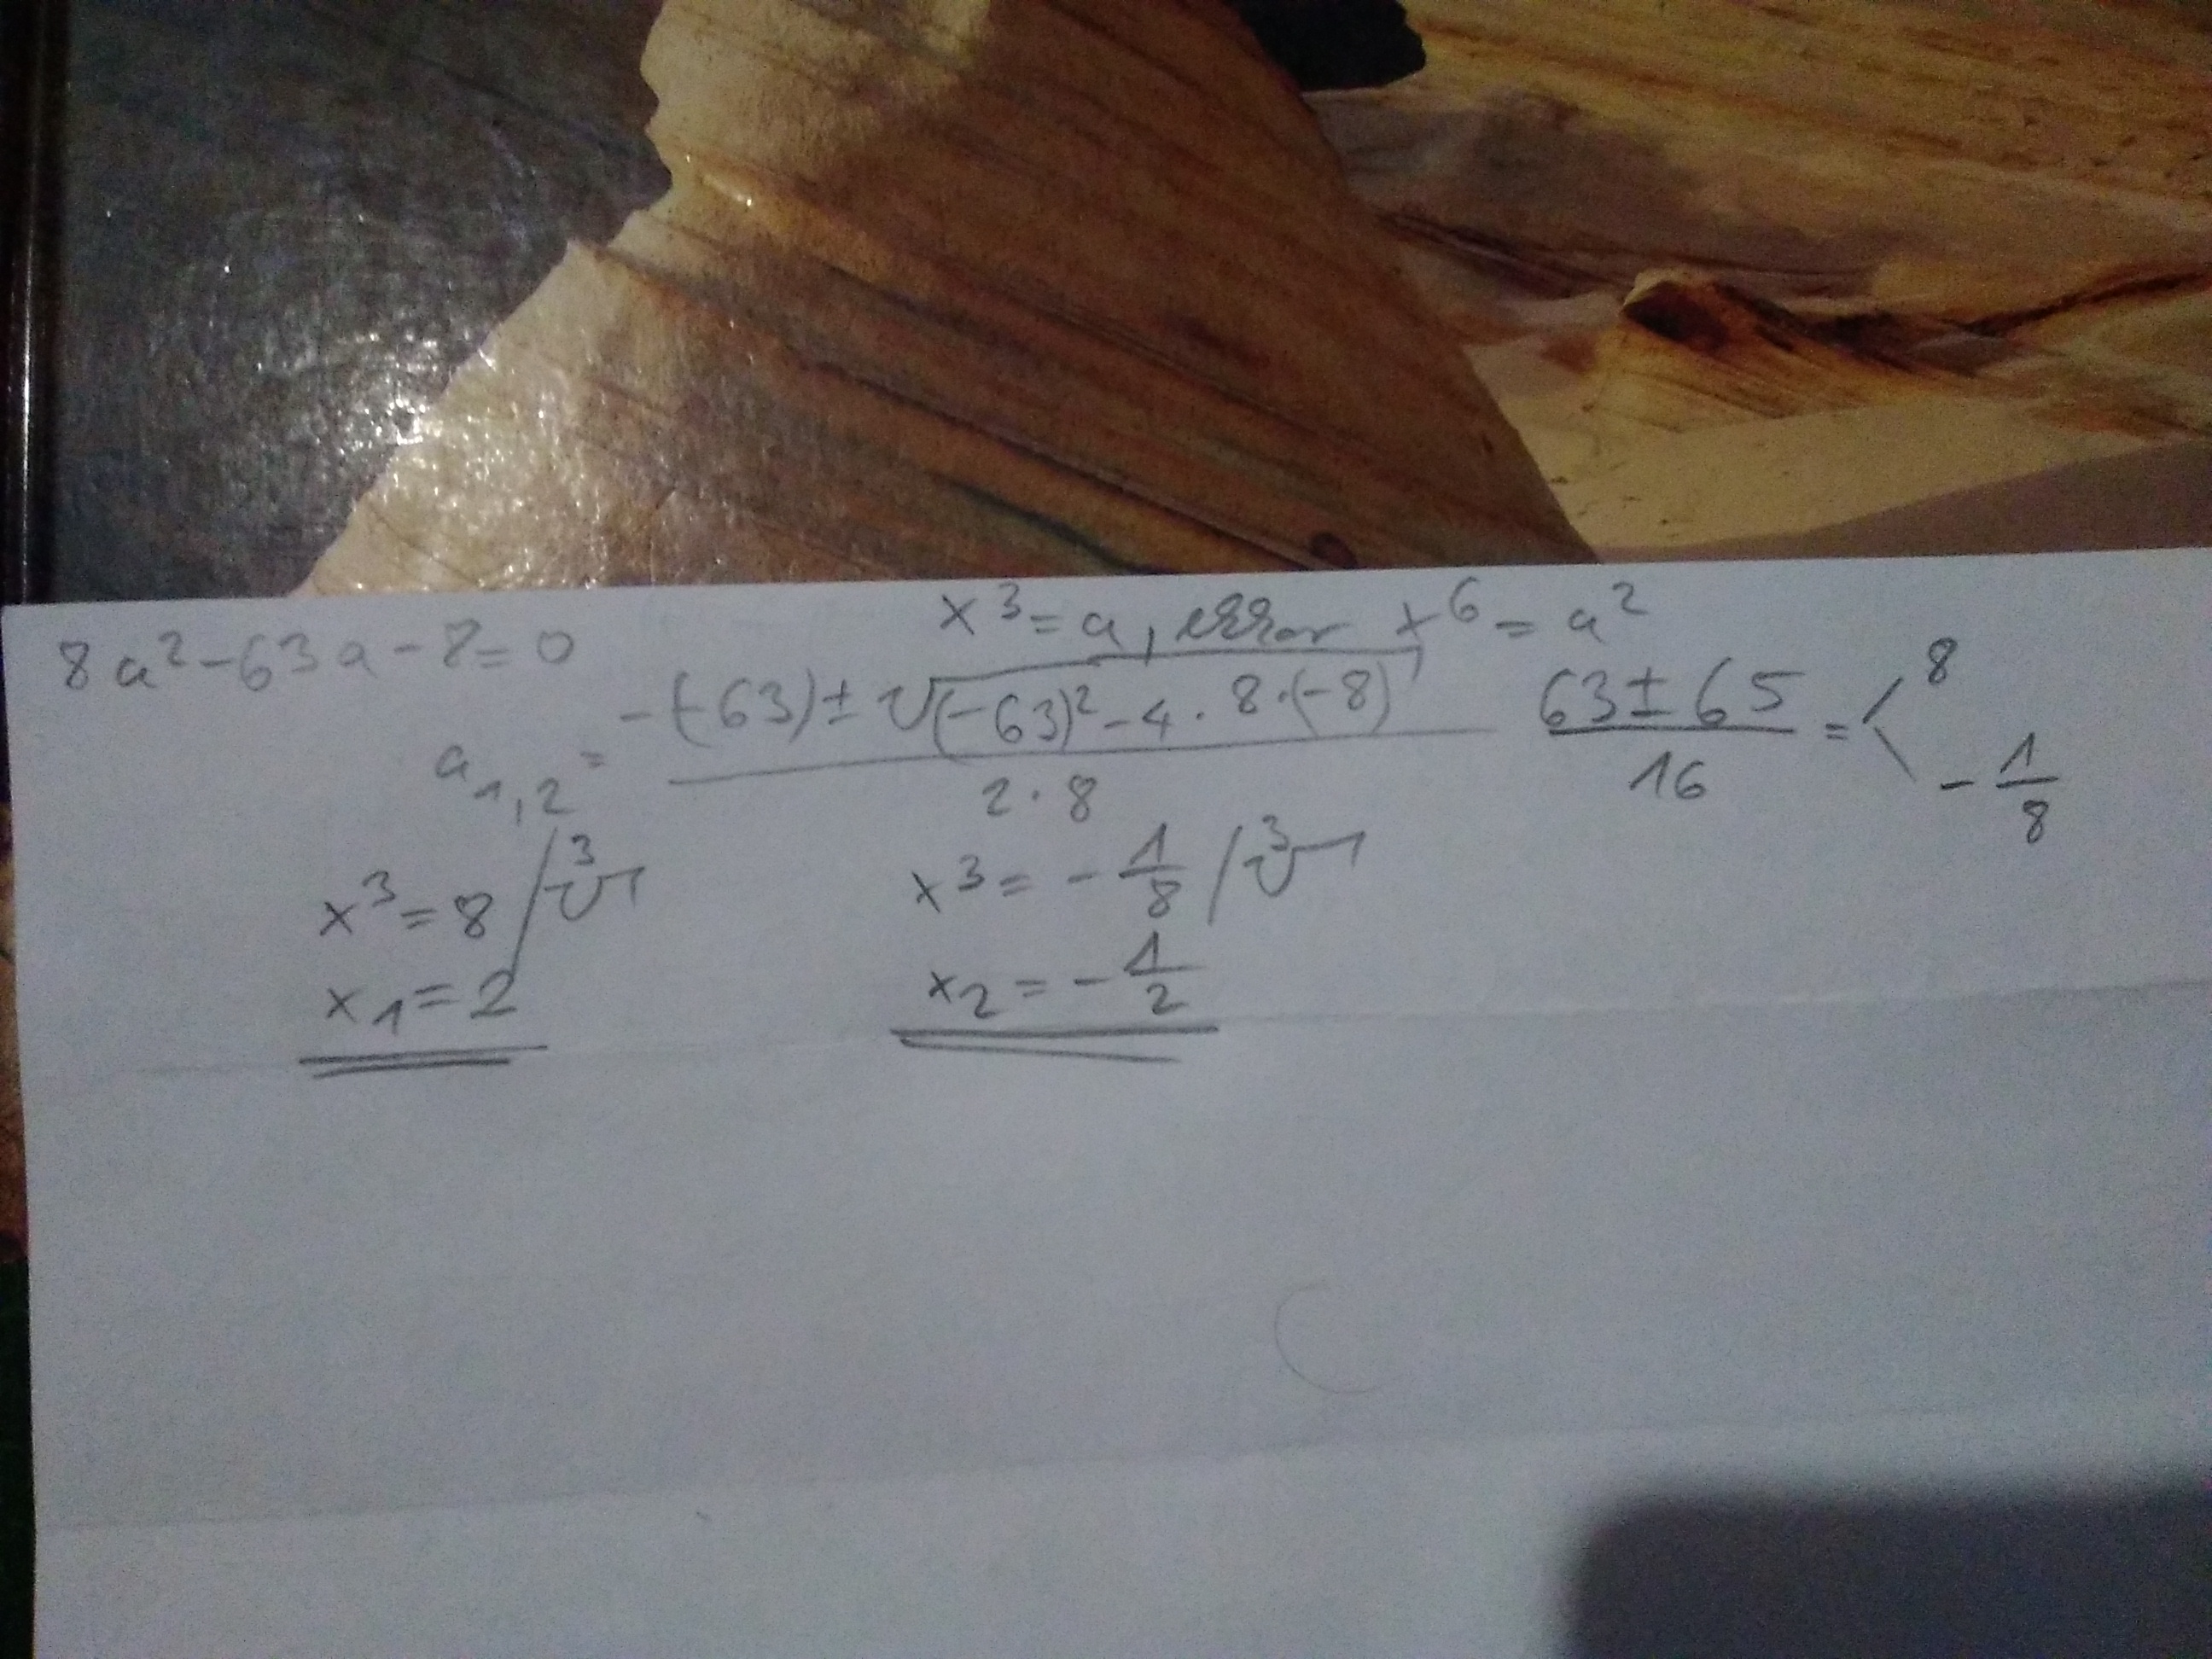 x³ = a, error x⁶ = a²
8a² - 63a - 8 = 0
a₁,₂ = (-(-63) ± √((-63)² - 4 · 8 · (-8))) / (2 · 8) (63 ± 65) / 16 = < 8, -1/8
x³ = 8 / ³√ x³ = -1/8 / ³√
x₁ = 2 x₂ = -1/2